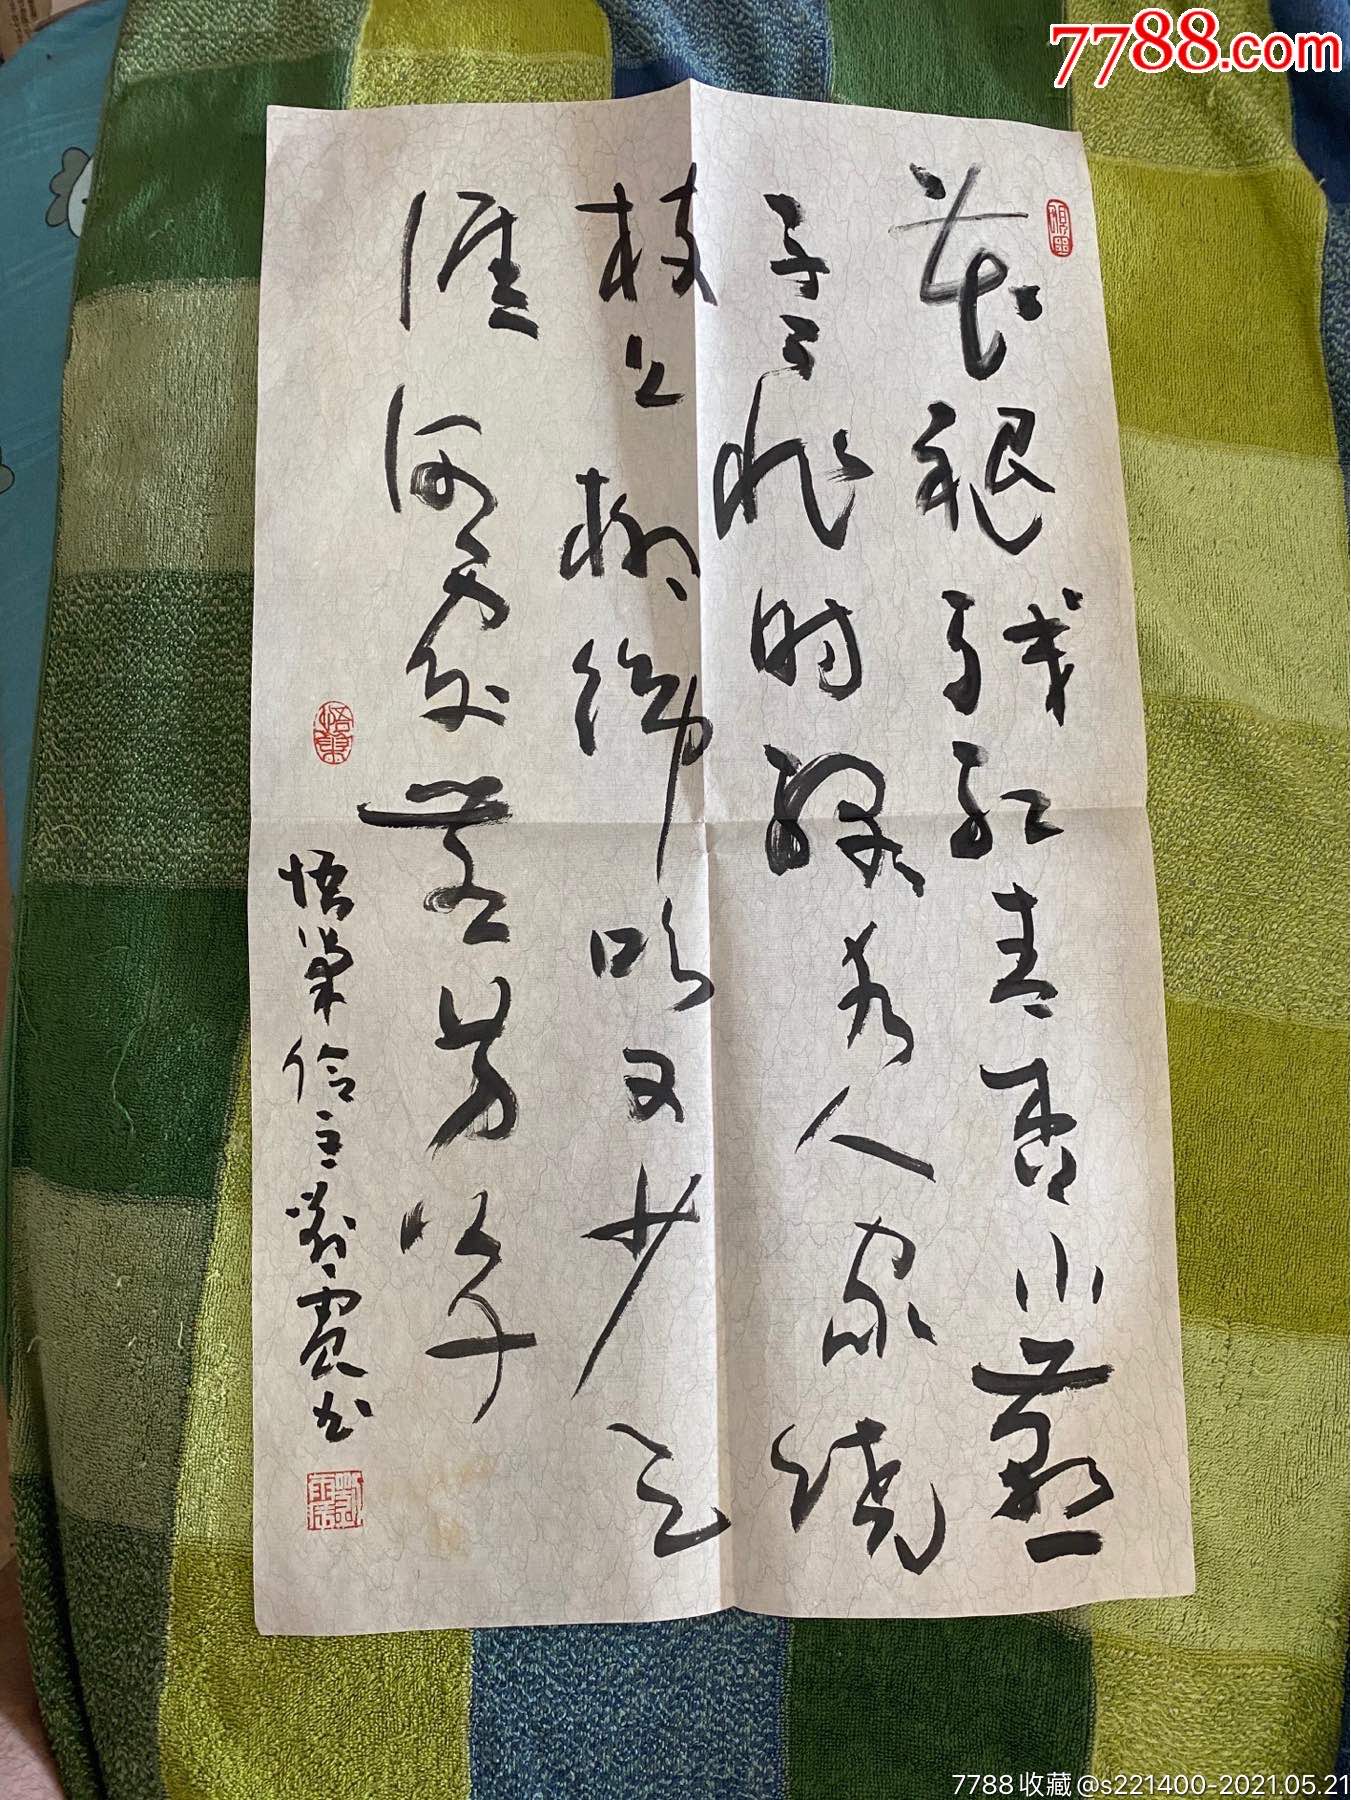 7788.com
花褪残红青杏小燕
子飞时绿水人家绕
枝上柳绵吹又少天
涯何处無芳草
7788收藏@s221400-2021.05.21